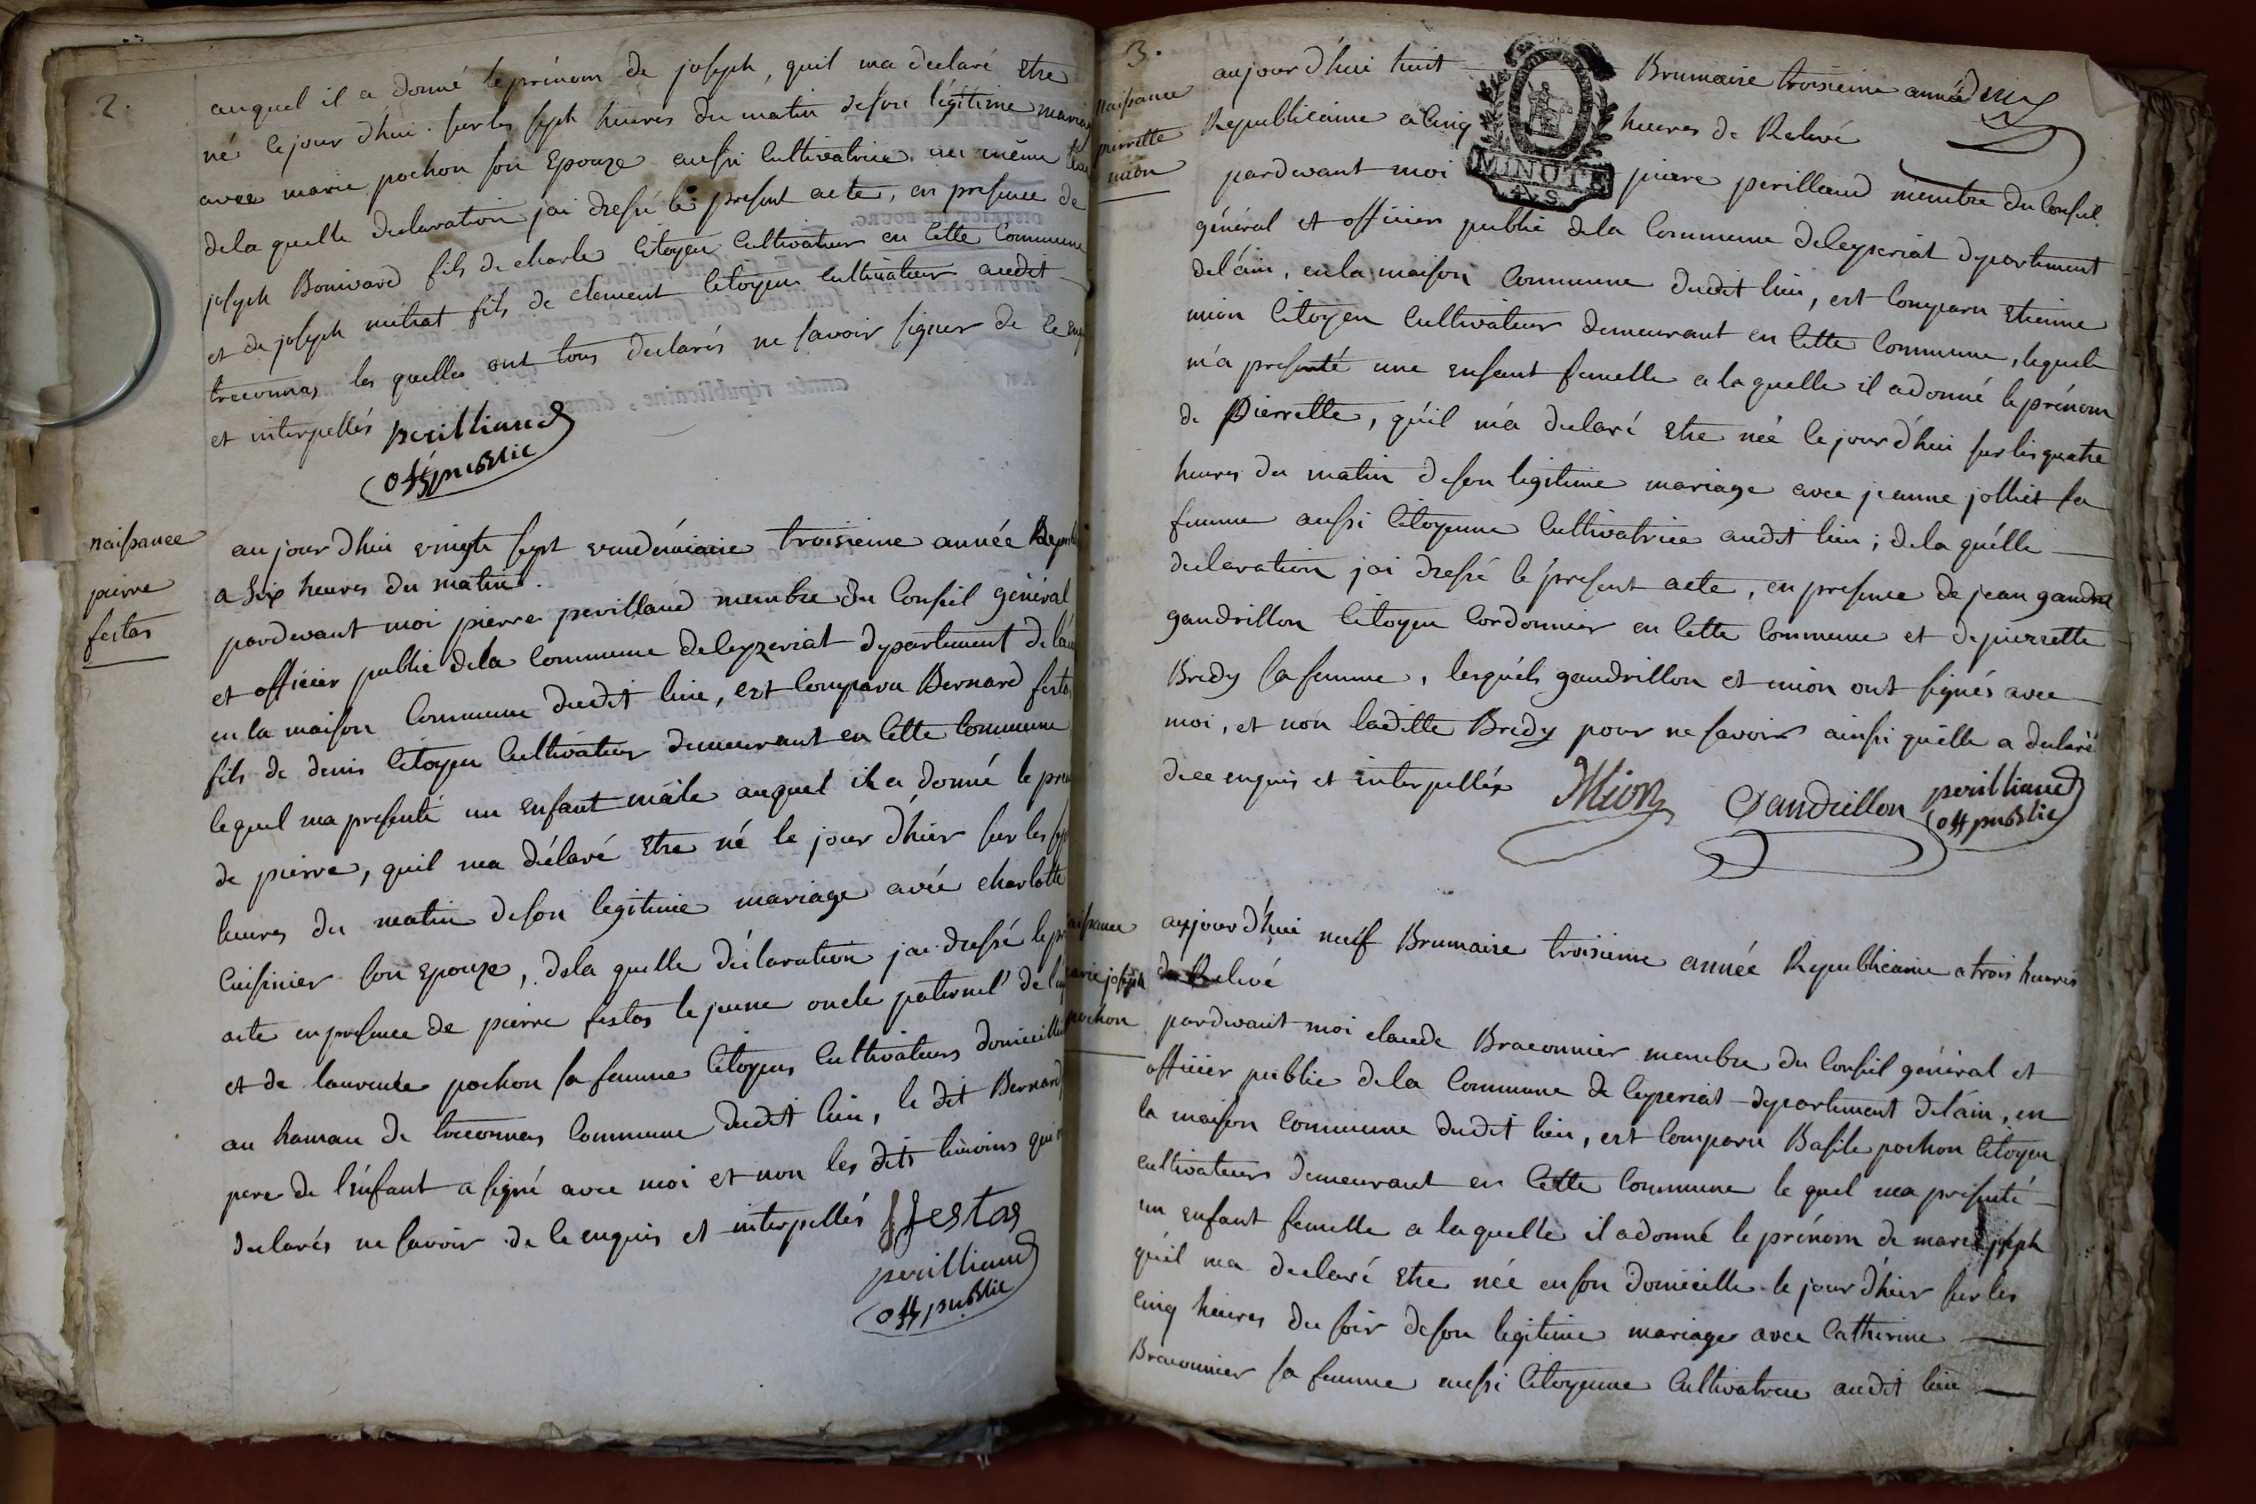 2.
auquel il a donné le prénom de joseph, quil ma declaré etre
né cejourdhui sur les sept heures du matin deson légitime mariage
avec marie pochon son Epouze aussi Cultivatrice au même lieu
dela quelle declaration jai dressé le present acte, en presence de
joseph Bonivard fils de charle Citoyen Cultivateur en Cette Commune
et de joseph mitiat fils de clement Citoyen Cultivateur audit
treconnas les quelles ont tous declarés ne savoir signer de ce enq
et interpellés perilliaud
off public
naissance
pierre
festas
aujourdhui vingt sept vendémiaire troisieme année Repub
a Six heures du matin.
pardevant moi pierre perillaud membre du Conseil général
et officier public dela Commune deleyzeriat departement de lain
en la maison Commune dudit lieu, est Comparu Bernard festas
fils de denis Citoyen Cultivateur demeurant en Cette Commune
lequel ma presenté un enfant mâle auquel il a donné le pré
de pierre, quil ma délaré etre né le jour d'hier sur les sept
heures du matin deson legitime mariage avec charlotte
Cuisinier son epouze, dela quelle déclaration jai dressé le pr
acte en presence de pierre festas le jeune oncle paternel de l'
et de laurence pochon sa femme Citoyens Cultivateurs domiciliés
au hamau de treconnas Commune dudit lieu, le dit Bernard
pere de l'énfant a signé avec moi et non les dits témoins qui
declarés ne savoir de ce enquis et interpellés festas
perilliaud
off public
3.
naissance
pierrette
mion
aujourd'hui huit Brumaire troisieme année
Republicaine a Cinq heures de Relevé
MINUTE
pardevant moi pierre perillaud membre du Conseil
général et officier public dela Commune deleyseriat departement
del'ain, en la maison Commune dudit lieu, est Comparu Etienne
mion Citoyen Cultivateur demeurant en Cette Commune, lequel
m'a presenté une enfant femelle a laquelle il adonné le prénom
de Pierrette, qu'il m'a declaré etre née lejourd'hui sur les quatre
heures du matin deson legitime mariage avec jeanne jolliet sa
femme aussi Citoyenne Cultivatrice audit lieu; dela quélle
declaration jai dressé le present acte, en presence de jean
gandrillon Citoyen Cordonnier en Cette Commune et depierrette
Bredy sa femme, lesquéls gandrillon et mion ont signés avec
moi, et non laditte Bredy pour ne savoir ainsi qu'elle a declaré
dece enquis et interpellés Mion Gandrillon perilliaud
off public
naissance
marie joseph
pochon
aujourd'hui neuf Brumaire troisieme année Republicaine a trois heures
de Relevé
pardevant moi claude Braconnier membre du Conseil général et
officier public dela Commune de leyseriat departement del'ain, en
la maison commune dudit lieu, est Comparu Basile pochon Citoyen
cultivateur demeurant en Cette Commune le quel ma présenté
un enfant femelle a laquelle il adonné le prénom de marie joseph
qu'il ma declaré etre née enson domicille le jour d'hier sur les
Cinq heures du soir deson legitime mariage avec Catherine
Braconnier sa femme aussi Citoyenne Cultivatrice audit lieu